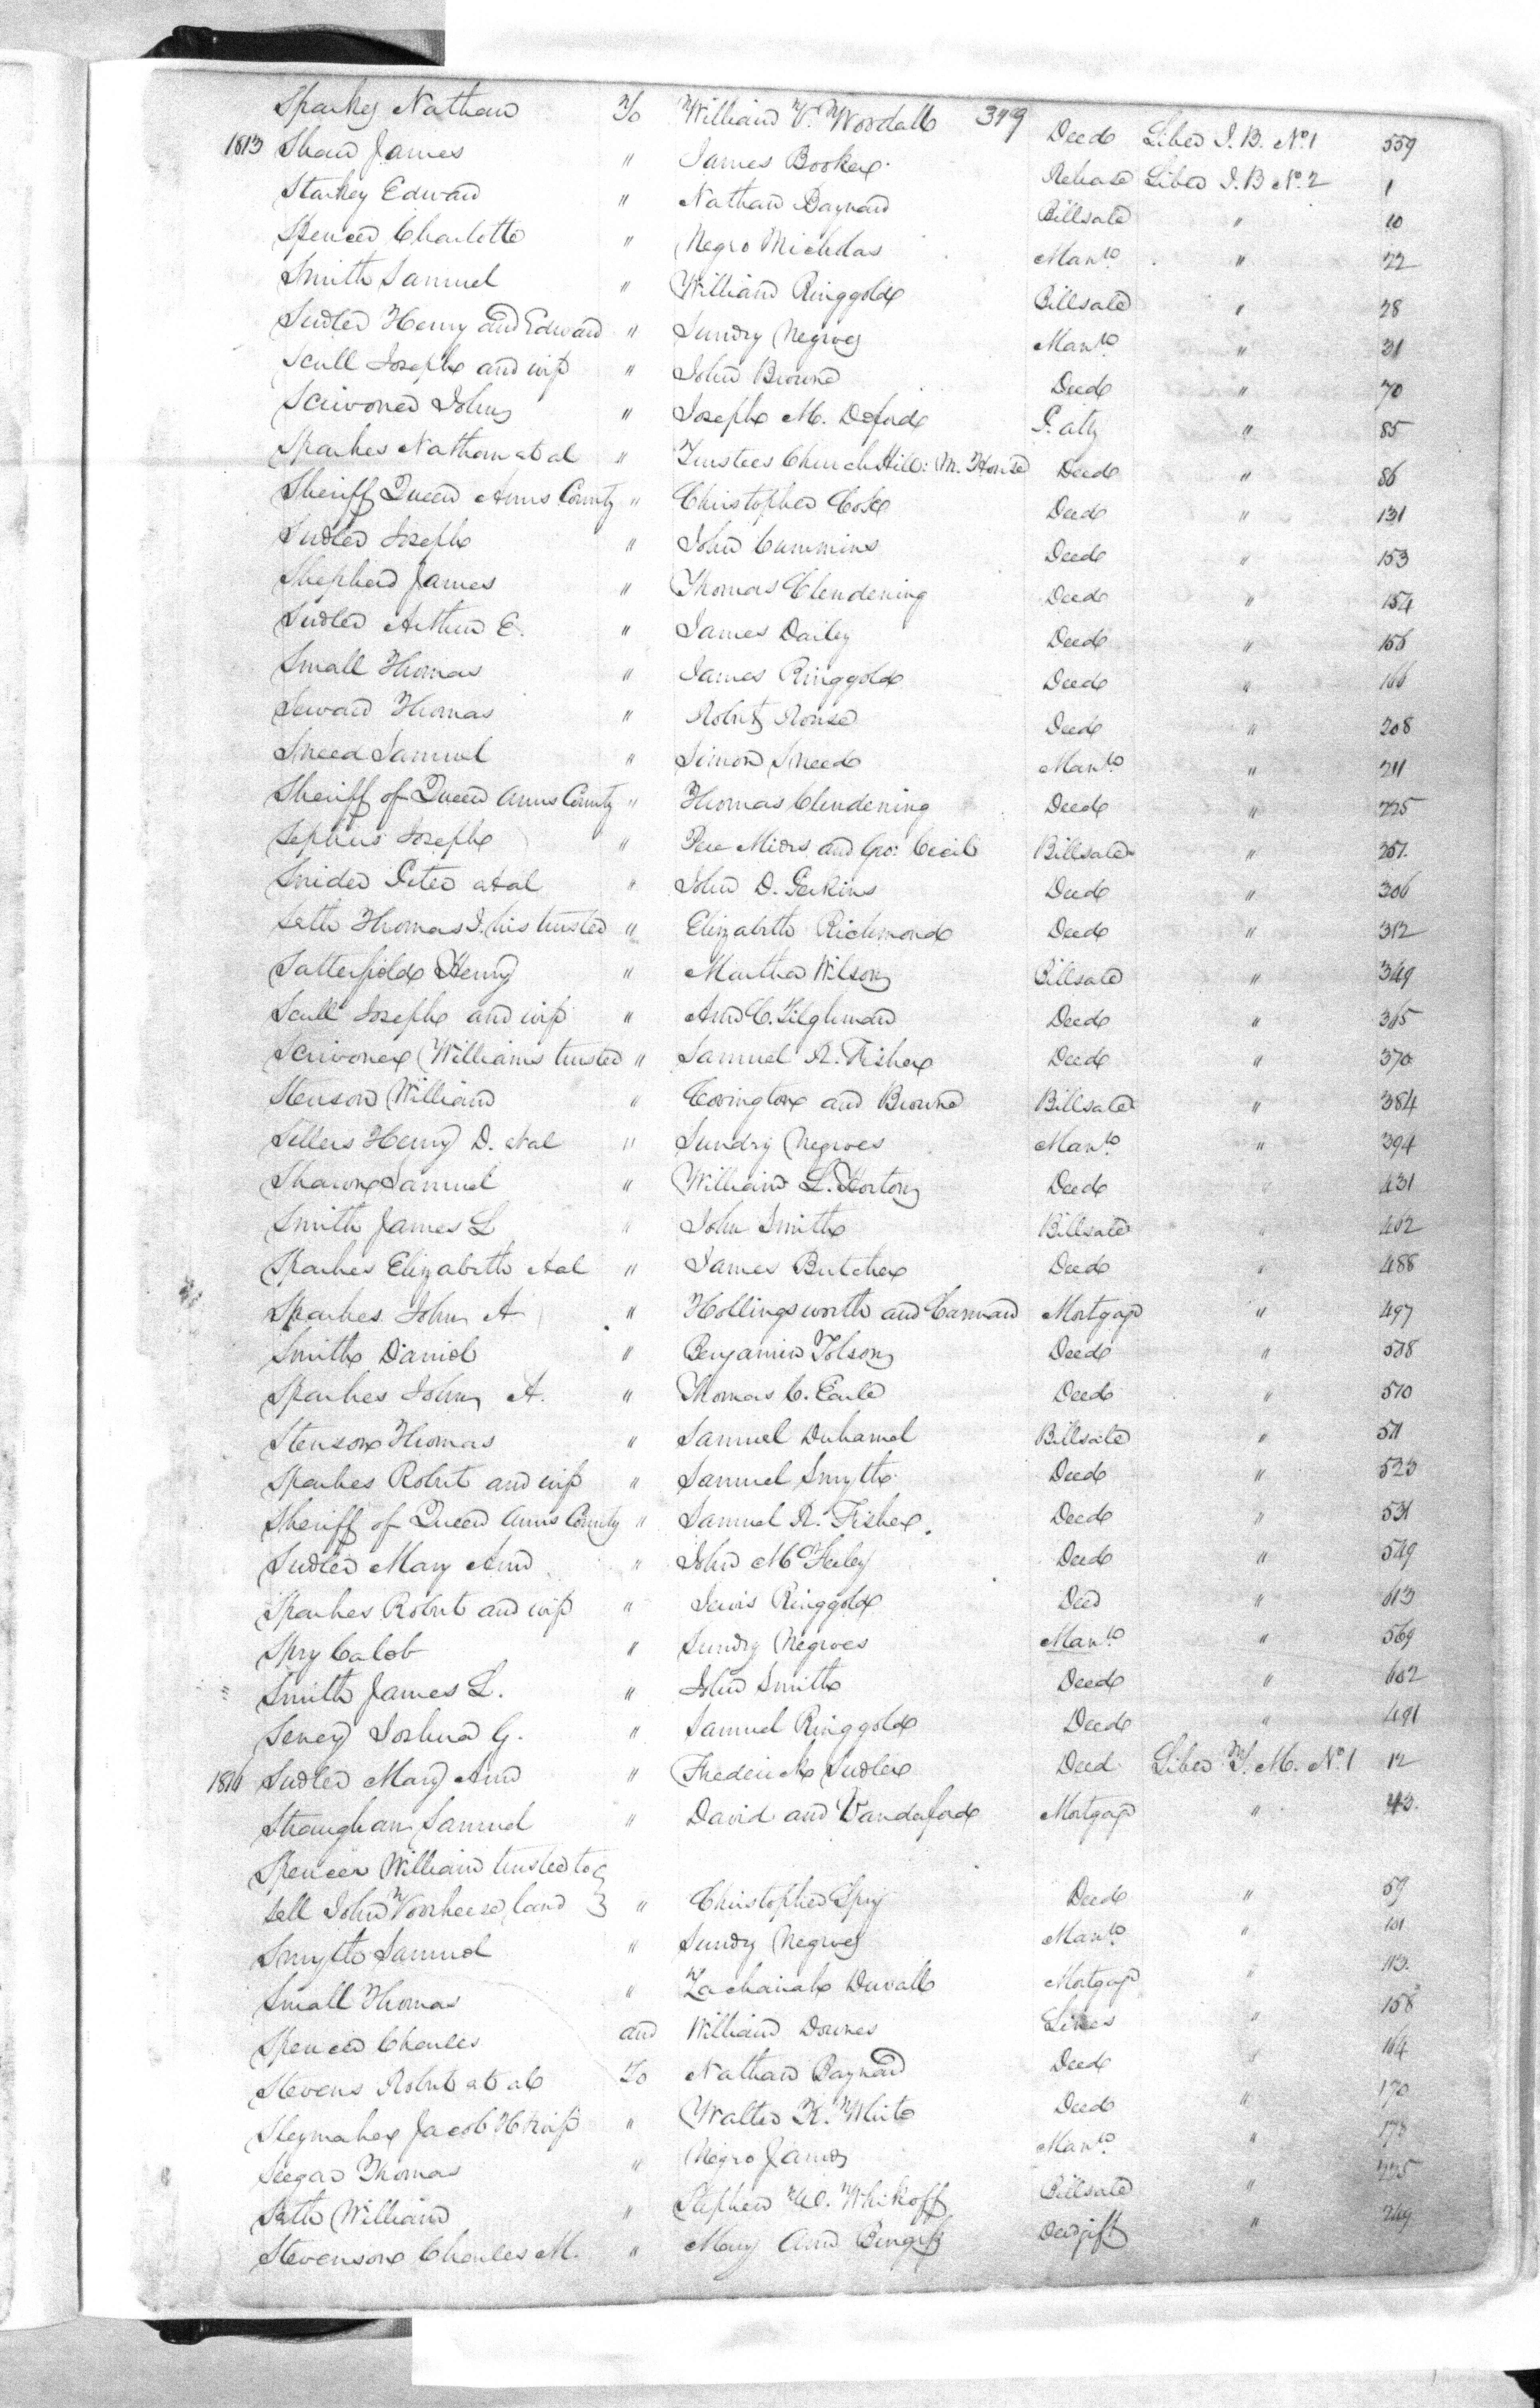 Sparks Nathan To William V. Woodall 379 Deed Liber J.B. No. 1 559
1813 Shaw James " James Booker Release Liber J.B No. 2 1
Starkey Edward " Nathan Baynard Billsale " 10
Spencer Charlotte " Negro Manto. " 22
Smith Samuel " William Ringgold Billsale " 28
Sudler Henry and Edward " Sundry Negroes Manto. " 31
Scull Joseph and wife " John Browne Deed " 70
Scrivoner John " Joseph M. Deford P. atty " 85
Sparkes Nathan et al " Trustees Church Hill: M. House Deed " 86
Sheriff Queen Anns County " Christopher Cox Deed " 131
Sudler Joseph " John Cummins Deed " 153
Shepherd James " Thomas Clendening Deed " 154
Sudler Arthur E. " James Dailey Deed " 156
Small Thomas " James Ringgold Deed " 166
Seward Thomas " Robert Rouse Deed " 208
Sneed Samuel " Simon Sneed Manto " 211
Sheriff of Queen Anns County " Thomas Clendening Deed " 225
Joseph " and Geo: Cecil Billsale " 257.
Snider Peter et al " John D. Perkins Deed " 306
Seth Thomas J. his trustee " Elizabeth Richmond Deed " 312
Satterfield Henry " Martha Wilson Billsale " 349
Scull Joseph and wife " Ann C. Tilghman Deed " 365
Scrivoner Williams trustee " Samuel R. Fisher Deed " 370
Stenson William " Covington and Browne Billsale " 384
Sellers Henry D. et al " Sundry Negroes Manto. " 394
Shawn Samuel " William L. Horton Deed " 431
Smith James L " John Smith Billsale " 462
Sparkes Elizabeth et al " James Butcher Deed " 488
Sparkes John A " Hollingsworth and Cannan Mortgage " 497
Smith Daniel " Benjamin Tolson Deed " 508
Sparkes John A. " Thomas C. Earle Deed " 510
Stenson Thomas " Samuel Duhamel Billsale " 511
Sparkes Robert and wife " Samuel Smyth Deed " 523
Sheriff of Queen Anns County " Samuel R. Fisher. Deed " 531
Sudler Mary Ann " John McFeeley Deed " 549
Sparkes Robert and wife " Lewis Ringgold Deed " 613
Spry Caleb " Sundry Negroes Manto " 569
" Smith James L. " John Smith Deed " 602
Seney Joshua G. " Samuel Ringgold Deed " 491
Sudler Mary Ann " Frederick Sudler Deed Liber T.M. No. 1 12
Straughan Samuel " David and Vandeford Mortgage " 43.
Spencer William trustee to
sell John Voorheese land } " Christopher Spry Deed " 59
Smyth Samuel " Sundry Negroes Manto. " 101
Small Thomas " Zachariah Duvall Mortgage " 113.
Spencer Charles and William Downes Lines " 158
Stevens Robert et al To Nathan Baynard Deed " 164
Sleymaker Jacob H & wife " Walter K. White Deed " 170
Seegar Thomas " Negro James Manto. " 173
Seth William " Stephen W. Whikoff Billsale " 225
Stevenson Charles M. " Mary Ann Deed gift " 249